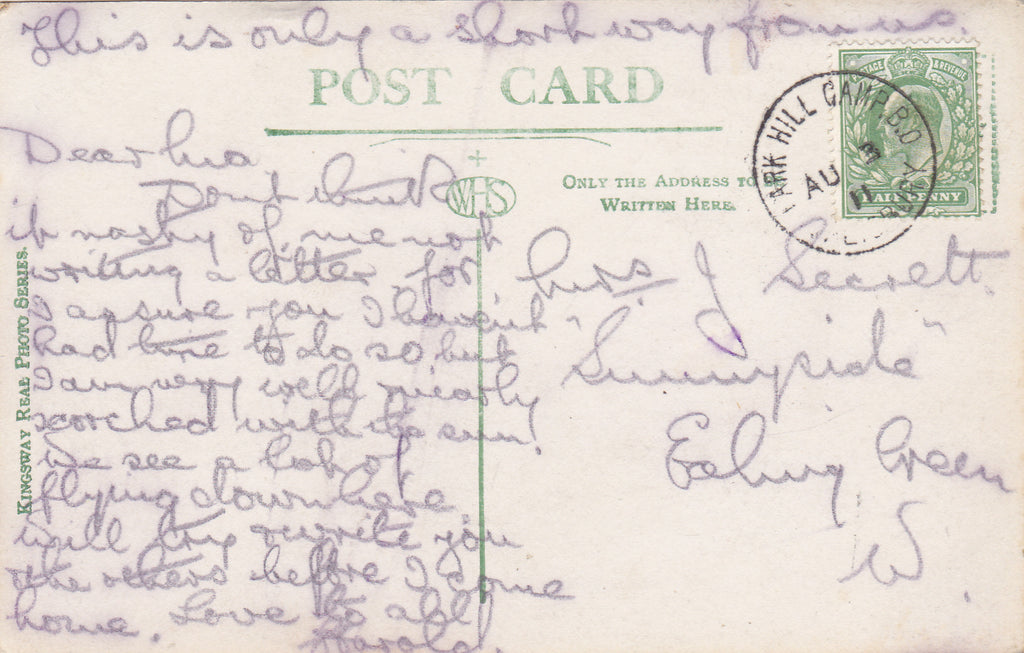 This is only a short way from us.
POST CARD
WHS
ONLY THE ADDRESS TO
WRITTEN HERE.
POSTAGE & REVENUE
HALFPENNY
PARK HILL CAMP. B.O
AU 3
11
KINGSWAY REAL PHOTO SERIES.
Dear
Dont think
it nasty of me not
writing a letter, for
I assure you I havent
had time to do so but
I am very well nearly
scorched with the sun!
We see a lot of
flying down here
will try & write you
& the others before I come
home. Love to all
Harold.
Mrs J Secrett.
"Sunnyside"
Ealing Green
W